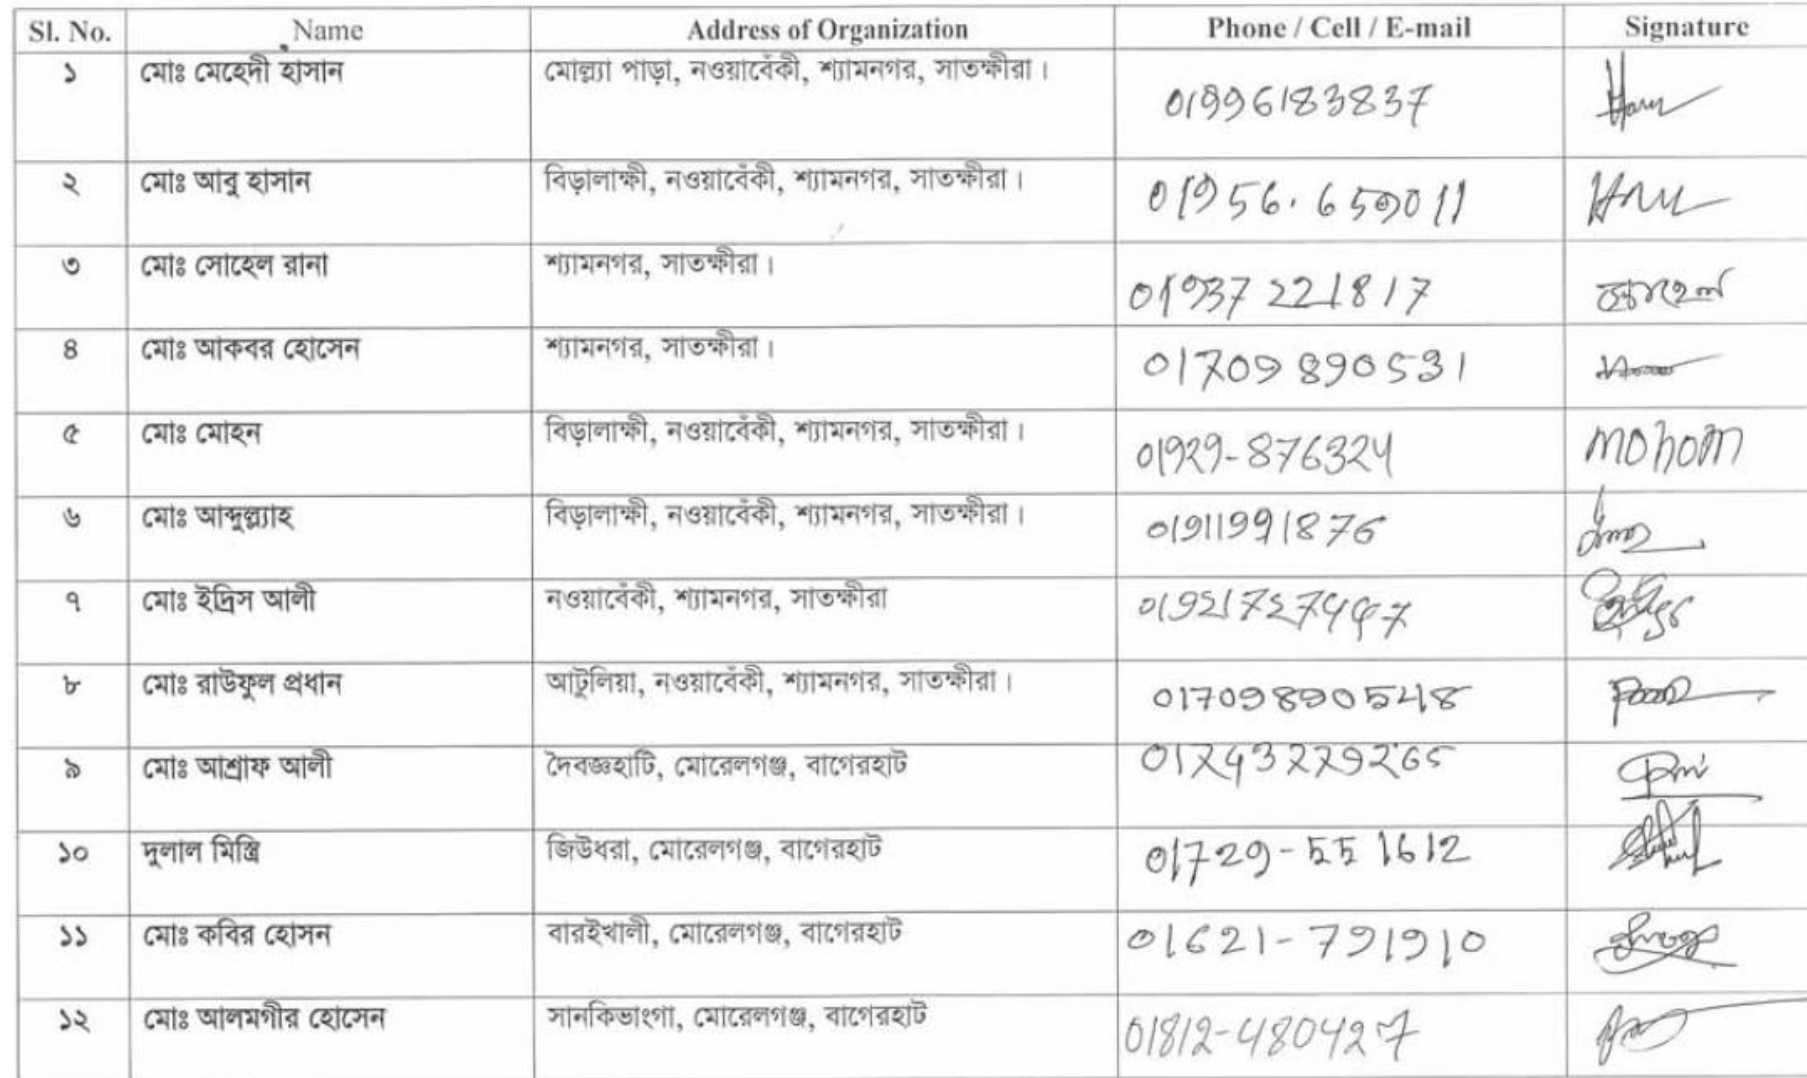 Sl. No. Name Address of Organization Phone / Cell / E-mail Signature
১ মোঃ মেহেদী হাসান মোল্ল্যা পাড়া, নওয়াবেঁকী, শ্যামনগর, সাতক্ষীরা। 01996183837
২ মোঃ আবু হাসান বিড়ালাক্ষী, নওয়াবেঁকী, শ্যামনগর, সাতক্ষীরা।
৩ মোঃ সোহেল রানা শ্যামনগর, সাতক্ষীরা। 01937 221817 সোহেল
৪ মোঃ আকবর হোসেন শ্যামনগর, সাতক্ষীরা। 01709 890531
৫ মোঃ মোহন বিড়ালাক্ষী, নওয়াবেঁকী, শ্যামনগর, সাতক্ষীরা। 01929-876324 mohon
৬ মোঃ আব্দুল্ল্যাহ বিড়ালাক্ষী, নওয়াবেঁকী, শ্যামনগর, সাতক্ষীরা। 01911991876
৭ মোঃ ইদ্রিস আলী নওয়াবেঁকী, শ্যামনগর, সাতক্ষীরা
৮ মোঃ রাউফুল প্রধান আটুলিয়া, নওয়াবেঁকী, শ্যামনগর, সাতক্ষীরা। 01709890548
৯ মোঃ আশ্রাফ আলী দৈবজ্ঞহাটি, মোরেলগঞ্জ, বাগেরহাট 01743279265
১০ দুলাল মিস্ত্রি জিউধরা, মোরেলগঞ্জ, বাগেরহাট 01729-551612
১১ মোঃ কবির হোসন বারইখালী, মোরেলগঞ্জ, বাগেরহাট 01621-791910
১২ মোঃ আলমগীর হোসেন সানকিভাংগা, মোরেলগঞ্জ, বাগেরহাট 01812-480427